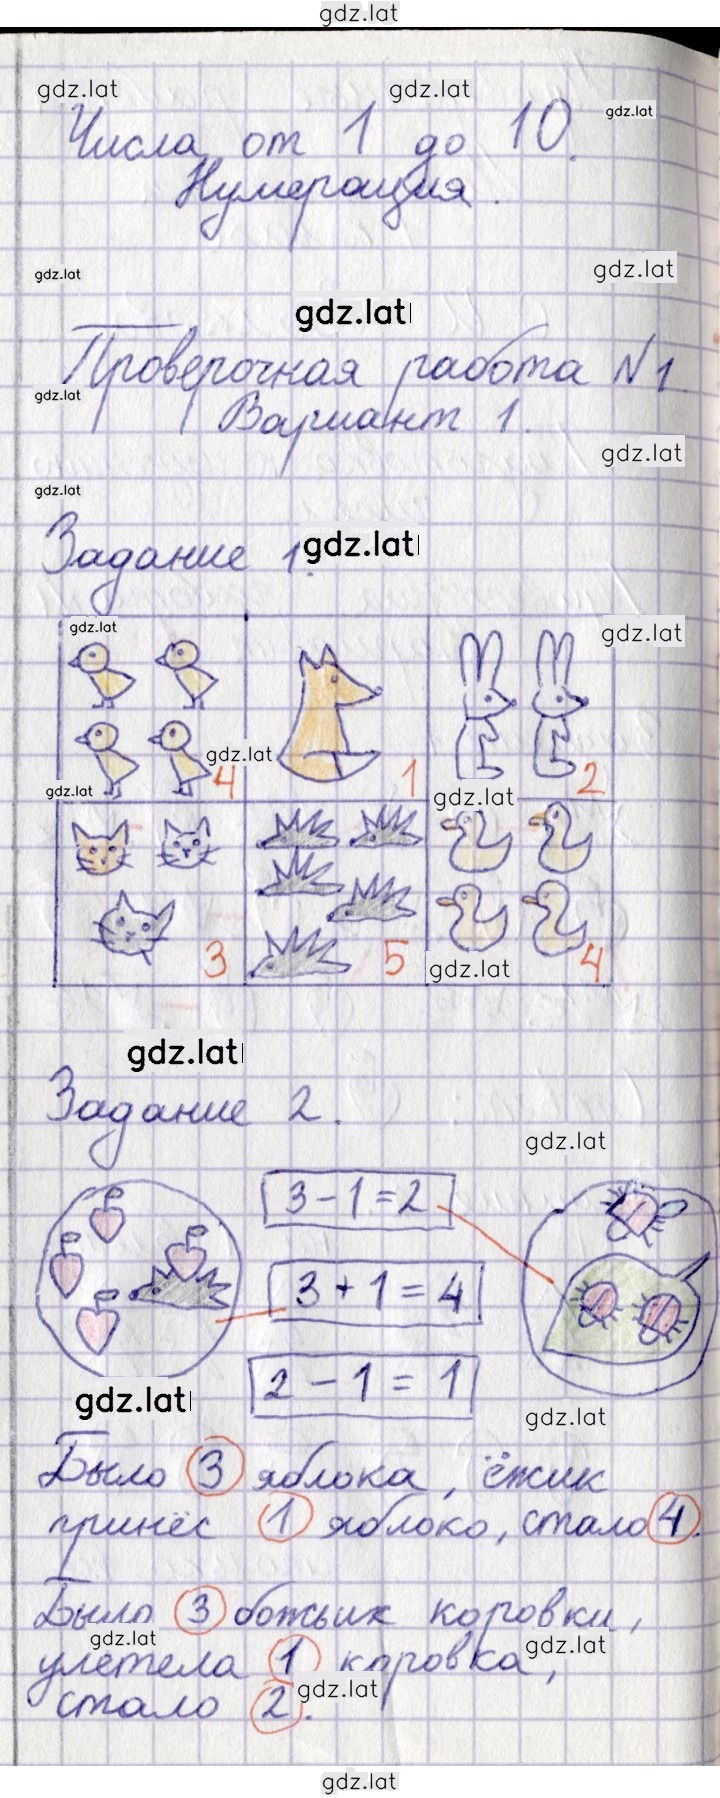 gdz.lat
gdz.lat gdz.lat gdz.lat
Числа от 1 до 10.
Нумерация.
gdz.lat gdz.lat
gdz.lat
Проверочная работа №1
gdz.lat
Вариант 1.
gdz.lat
gdz.lat
Задание 1.
gdz.lat
gdz.lat gdz.lat
gdz.lat
4 1 2
gdz.lat gdz.lat
3 5 4
gdz.lat
gdz.lat
Задание 2.
gdz.lat
3 - 1 = 2
3 + 1 = 4
2 - 1 = 1
gdz.lat gdz.lat
Было 3 яблока, ёжик
принёс 1 яблоко, стало 4.
Было 3 божьих коровки,
gdz.lat gdz.lat
улетела 1 коровка,
gdz.lat
стало 2.
gdz.lat